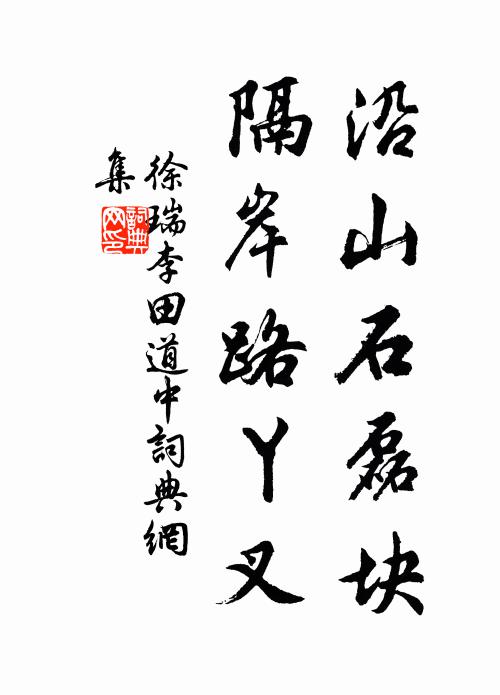 沿山石磊块
隔岸路丫叉
徐瑞李田道中詞典網
集
詞典网印